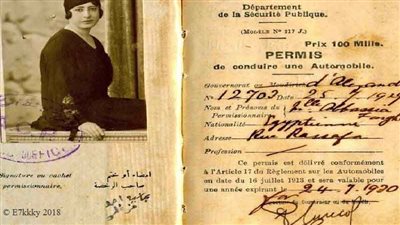 Département
de la Sécurité Publique.
(MODÈLE No 117 J.)
Prix 100 Mills.
PERMIS
de conduire une Automobile.
Gouvernorat ou Moudirieh d'Alexand
No 12703 DATE 25-7-1929
Nom et Prénoms du
Permissionnaire
Nationalité Egyptienne
Adresse Rue Rassafa
Profession
Ce permis est délivré conformément
à l'Article 17 du Règlement sur les Automobiles
en date du 16 juillet 1913 et sera valable
pour une année expirant le 24-7-1930
Signature ou cachet
permissionnaire.
امضاء أو ختم
صاحب الرخصة
© E7kky 2018